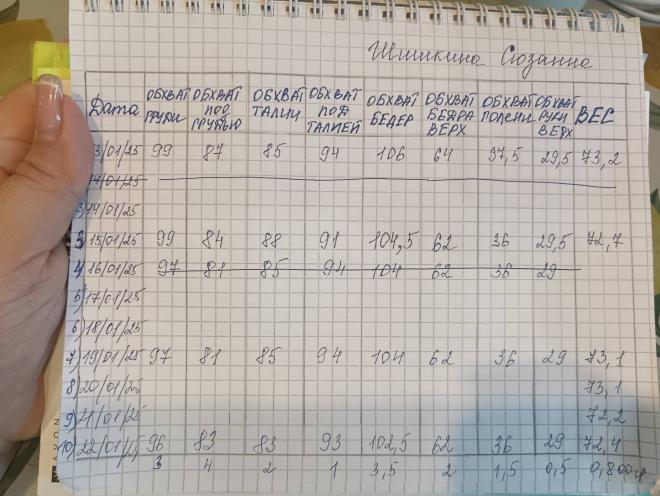 Шишкина Сюзанна
Дата ОБХВАТ ГРУДИ ОБХВАТ ПОД ГРУДЬЮ ОБХВАТ ТАЛИИ ОБХВАТ ПОД ТАЛИЕЙ ОБХВАТ БЕДЕР ОБХВАТ БЕДРА ВЕРХ ОБХВАТ ГОЛЕНИ ОБХВАТ РУКИ ВЕРХ ВЕС
13/01/25 99 87 85 94 106 64 37,5 29,5 73,2
14/01/25
14/01/25
3) 15/01/25 99 84 88 91 104,5 62 36 29,5 72,7
4) 16/01/25 97 81 85 94 104 62 36 29
5) 17/01/25
6) 18/01/25
7) 19/01/25 97 81 85 94 104 62 36 29 73,1
8) 20/01/25 73,1
9) 21/01/25 72,2
10) 22/01/25 96 83 83 93 102,5 62 36 29 72,4
3 4 2 1 3,5 2 1,5 0,5 0,800